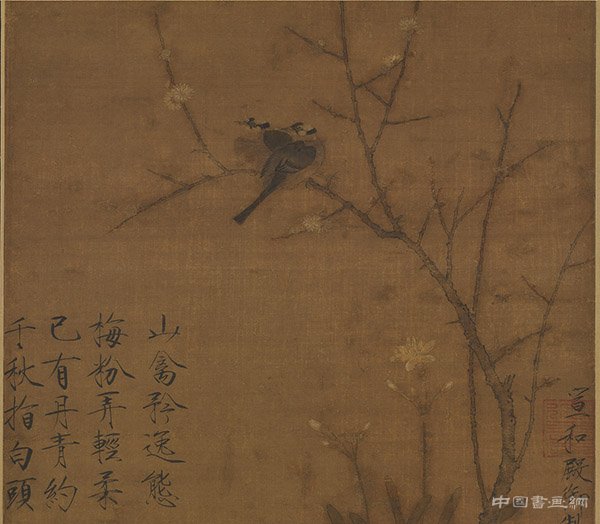 山禽矜逸態
梅粉弄輕柔
已有丹青約
千秋指白頭
宣和殿御製
中国書画網